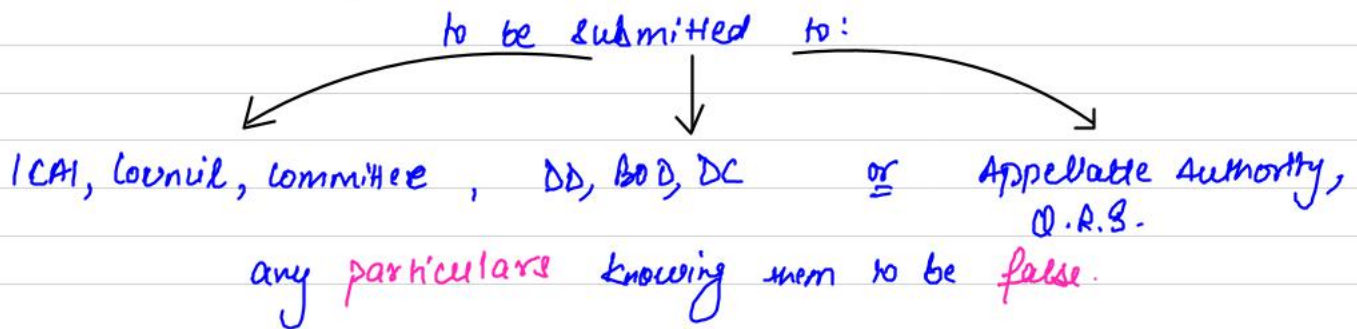 to be submitted to:
ICAI, Council, Committee, DD, BOD, DC or Appellatte Authority,
Q.R.B.
any particulars knowing them to be false.